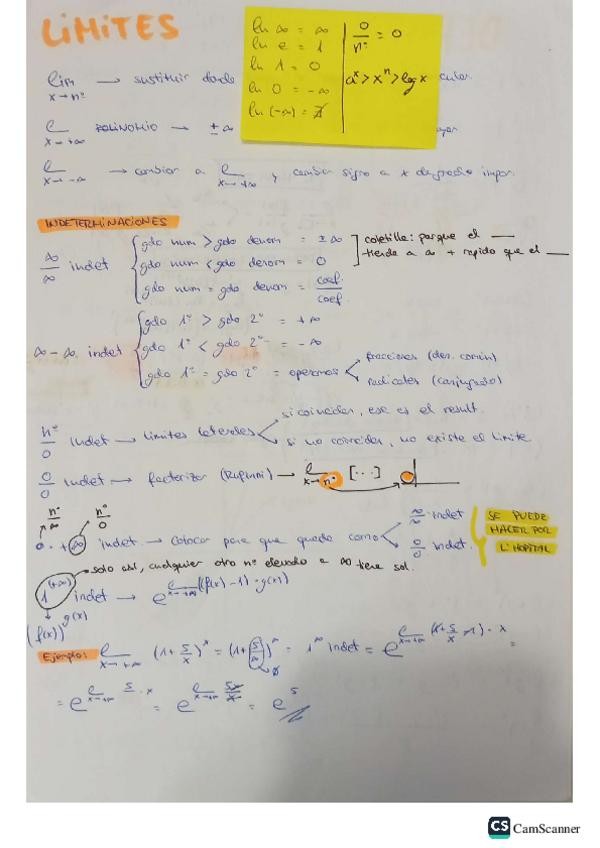 LÍMITES
ln ∞ = ∞
ln e = 1
ln 1 = 0
ln 0 = -∞
ln (-∞) = ∄
0/nº = 0
aˣ > xⁿ > log x
lim x→nº → sustituir donde
x→+∞ POLINOMIO → ±∞
x→-∞ → cambiar a x→+∞ y cambiar signo a x de grado impar.
INDETERMINACIONES
∞/∞ indet
gdo num > gdo denom = ±∞
gdo num < gdo denom = 0
gdo num = gdo denom = coef./coef.
coletilla: porque el ___
tiende a ∞ + rapido que el ___
∞-∞ indet
gdo 1º > gdo 2º = +∞
gdo 1º < gdo 2º = -∞
gdo 1º = gdo 2º = operamos
fracciones (den. común)
radicales (conjugado)
nº/0 indet → límites laterales
si coinciden, ese es el result.
si no coinciden, no existe el límite
0/0 indet → factorizar (Ruffini) → x→nº [...]
nº/∞ nº/0
0·+∞ indet → colocar para que quede como
∞/∞ indet
0/0 indet.
SE PUEDE
HACER POR
L'HOPITAL
solo así, cualquier otro nº elevado a ∞ tiene sol.
1^(+∞) indet → e^(x→+∞ (f(x)-1)·g(x))
(f(x))^g(x)
Ejemplo: x→+∞ (1+5/x)^x = (1+5/∞)^∞ = 1^∞ indet = e^(x→+∞ (1+5/x-1)·x) =
= e^(x→+∞ 5/x·x) = e^(x→+∞ 5x/x) = e^5
CS CamScanner